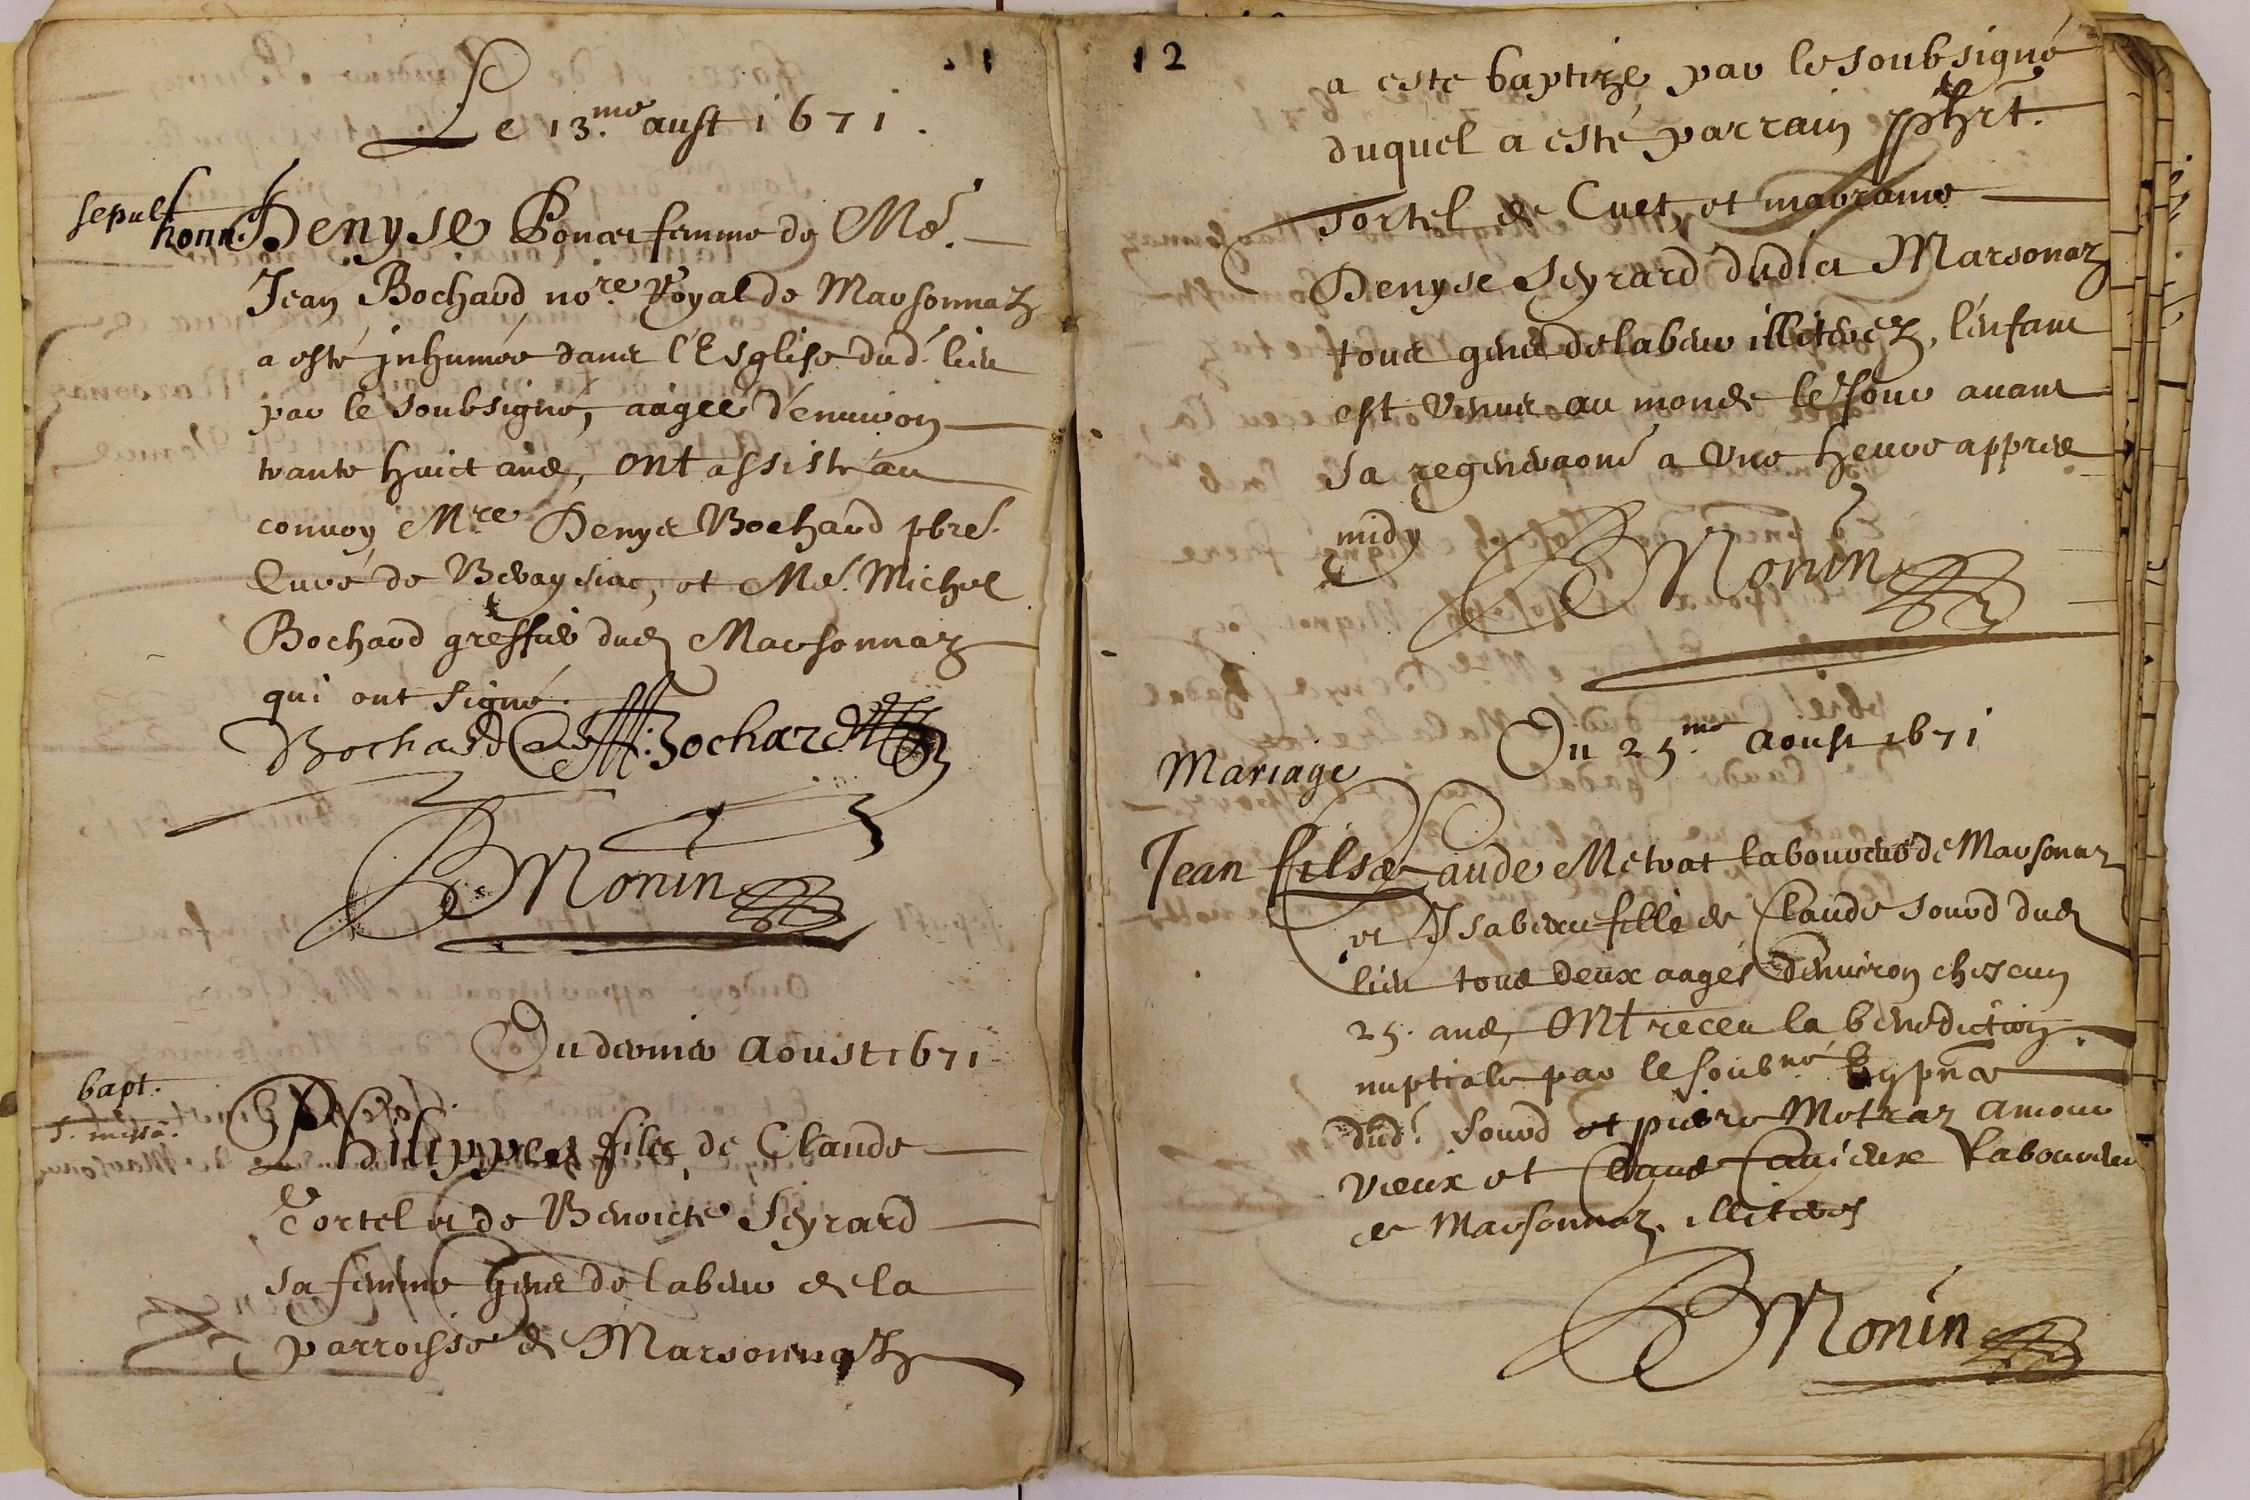 11
Le 13.me aust 1671.
sepult
honn. Denyse Poncet femme de Me.
Jean Bochard no.re Royal de Marsonnaz
a esté jnhumée dans l'Esglise dud. lieu
par le soubsigné, aagée d'enuiron
trante huict ans, ont assisté au
conuoy M.re Denys Bochard pbre.
Curé de Beraysiac, et Me. Michel
Bochard greffier dud Marsonnaz
qui ont signé.
Bochard Curé M: Bochard
B Monin
Du dernier Aoust 1671
bapt.
Philippes fils de Claude
Tortel et de Benoicte Seyrard
sa femme gens de labeur de la
parroisse de Marsonnaz
12
a este baptize par le soubsigné
duquel a esté parrain phrt.
Tortel de Cuet, et marraine
Denyse Seyrard dudict Marsonaz
tous gens de labeur illiterez, l'enfant
est venus au monde le jour auant
sa regeneraon a vne heure appres
midy
B Monin
Du 25.me Aoust 1671
Mariage
Jean fils de Claude Metrat laboureur de Marsonaz
et Isabeau fille de Claude Sourd dud
lieu tous deux aagés d'enuiron chescun
25. ans, ont receu la benediction
nuptiale par le soubné En pnce
dud. Sourd et pierre Metraz Amour
vieux et Claude Cauieux laboureurs
de Marsonnaz. illiterés
B Monin